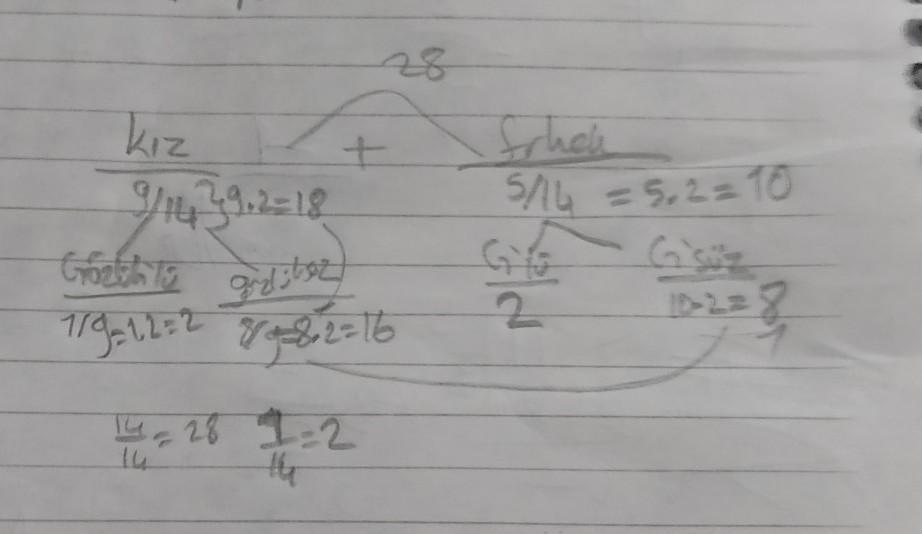 28
kız + Erkek
9/14 } 9.2=18 5/14 = 5.2=10
Gözlüklü gözlüksüz G'lü G'süz
1/9=1.2=2 8/9=8.2=16 2 10-2=8
14/14=28 1/14=2